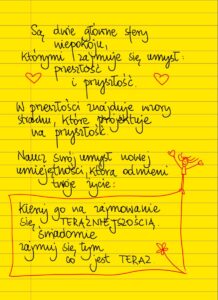 Są dwie główne sfery
niepokoju,
którymi zajmuje się umysł:
przeszłość
i przyszłość.
W przeszłości znajduje wzory
strachu, które projektuje
na przyszłość.
Naucz swój umysł nowej
umiejętności, która odmieni
twoje życie:
Kieruj go na zajmowanie
się TERAŹNIEJSZOŚCIĄ
świadomie
zajmuj się tym
co jest TERAZ